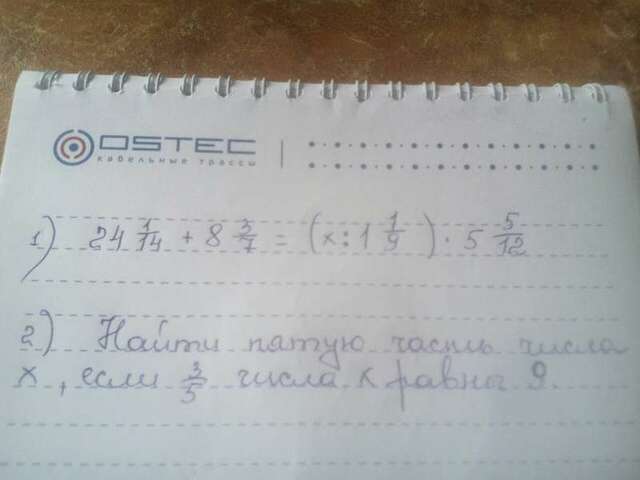 OSTEC
кабельные трассы
1) 24 1/14 + 8 3/7 = (x : 1 1/9) · 5 5/12
2) Найти пятую часть числа
x, если 3/5 числа x равны 9.